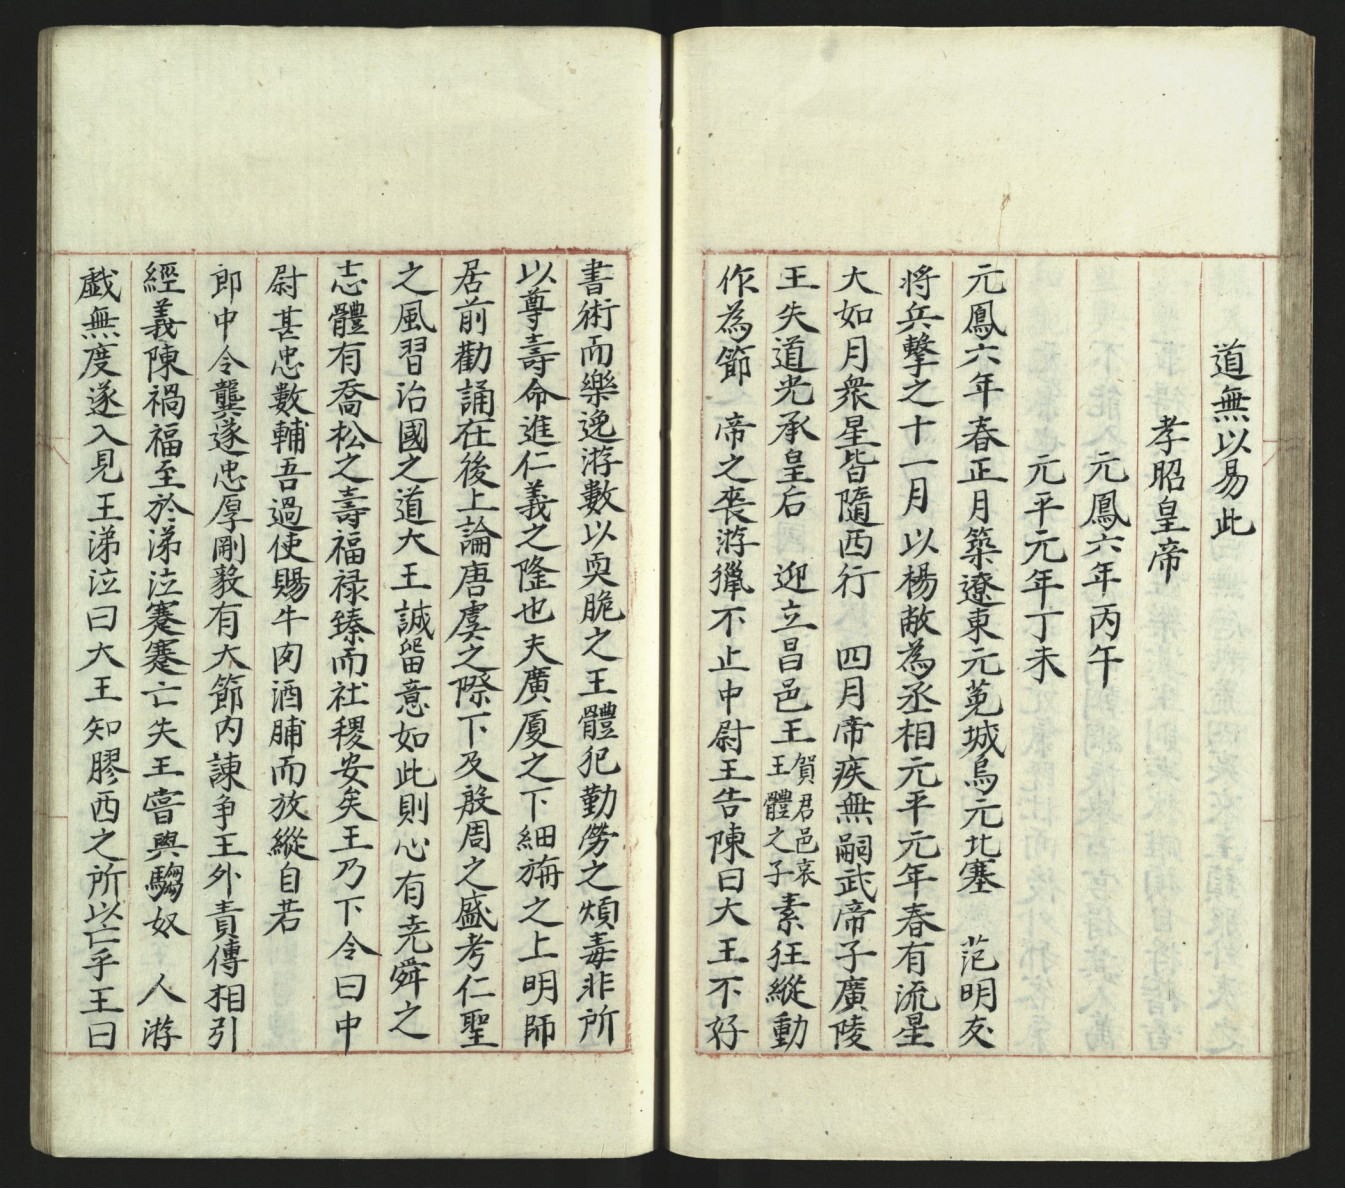 道無以易此
孝昭皇帝
元鳳六年丙午
元平元年丁未
元鳳六年春正月築遼東元菟城烏元北塞　范明友
將兵擊之十一月以楊敞為丞相元平元年春有流星
大如月衆星皆隨西行　四月帝疾無嗣武帝子廣陵
王失道光承皇后　迎立昌邑王賀君邑哀王體之子素狂縱動
作為節　帝之喪游獵不止中尉王告陳曰大王不好
書術而樂逸游數以耎脆之王體犯勤勞之煩毒非所
以尊壽命進仁義之隆也夫廣厦之下細旃之上明師
居前勸誦在後上論唐虞之際下及殷周之盛考仁聖
之風習治國之道大王誠留意如此則心有堯舜之
志體有喬松之壽福禄臻而社稷安矣王乃下令曰中
尉甚忠數輔吾過使賜牛肉酒脯而放縱自若
郎中令龔遂忠厚剛毅有大節内諫争王外責傳相引
經義陳禍福至於涕泣蹇蹇亡失王嘗與騶奴　人游
戲無度遂入見王涕泣曰大王知膠西之所以亡乎王曰